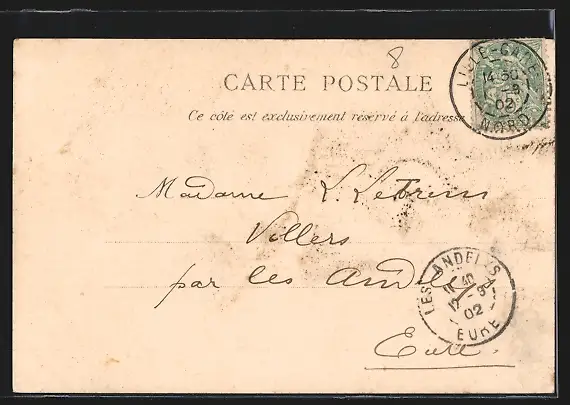 8
CARTE POSTALE
Ce côté est exclusivement réservé à l'adresse
LILLE-GARE
14 50
02
NORD
Madame L.
Villers
par les Andelys
LES ANDELYS
02
EURE
Eure